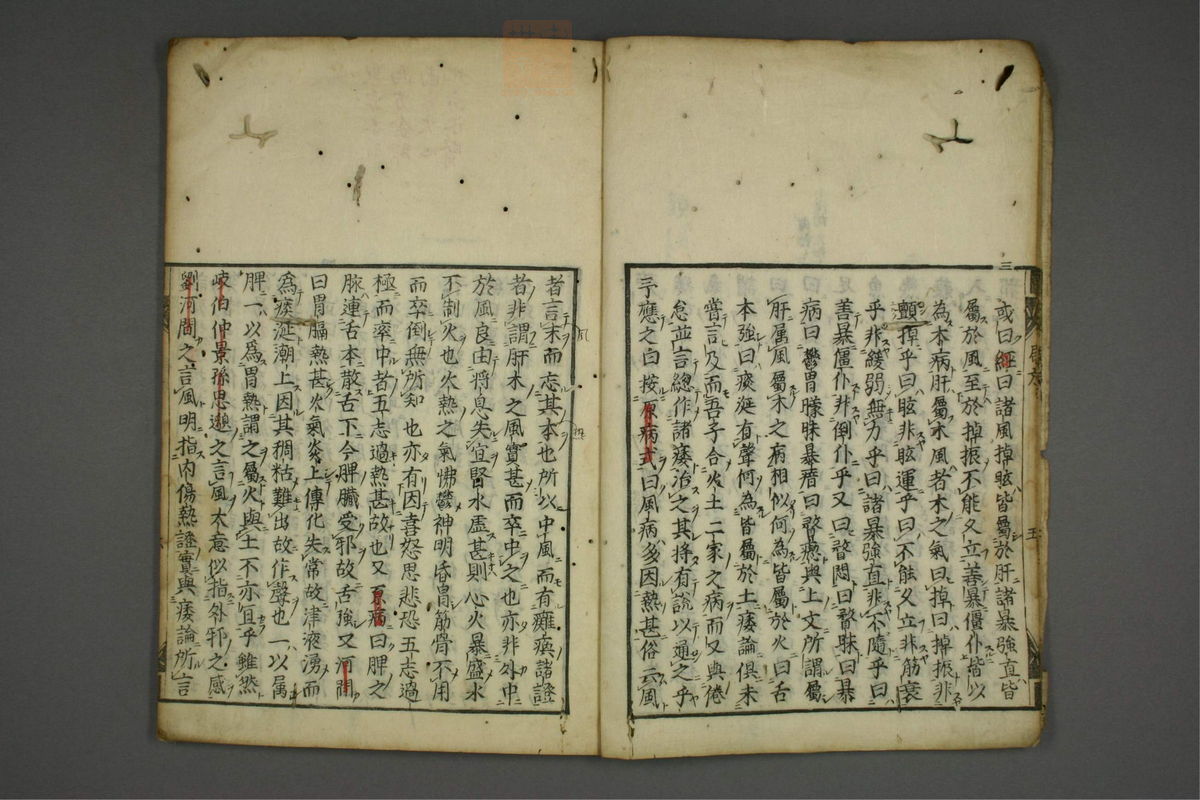 或曰經曰諸風掉眩皆屬於肝諸暴強直皆
屬於風至於掉振不能久立善暴僵仆皆以
為本病肝屬木風者木之氣曰掉曰掉振非
顫掉乎曰眩非眩運乎曰不能久立非筋衰
乎非緩弱無力乎曰諸暴強直非不隨乎曰
善暴僵仆非倒仆乎又曰瞀悶曰瞀昧曰暴
病曰鬱冒朦昧暴瘖曰瞀瘛與上文所謂屬
肝属風屬木之病相似何為皆屬於火曰舌
本強曰痰涎有聲何為皆屬於土痿論俱未
嘗言及而吾子合火土二家之病而又與倦
怠並言總作諸痿治之其將有說以通之乎
予應之曰按原病式曰風病多因熱甚俗云風
者言末而忘其本也所以中風而有癱瘓諸證
者非謂肝木之風實甚而卒中之也亦非外中
於風良由將息失宜腎水虛甚則心火暴盛水
不制火也火熱之氣怫鬱神明昏冒筋骨不用
而卒倒無所知也亦有因喜怒思悲恐五志過
極而卒中者五志過熱甚故也又原病曰脾之
脉連舌本散舌下今脾臟受邪故舌強又河間
曰胃膈熱甚火氣炎上傳化失常故津液湧而
爲痰涎潮上因其稠粘難出故作聲也一以属
脾一以爲胃熱謂之屬火與土不亦宜乎雖然
岐伯仲景孫思邈之言風大意似指外邪之感
劉河間之言風明指內傷熱證實與痿論所言
三
五